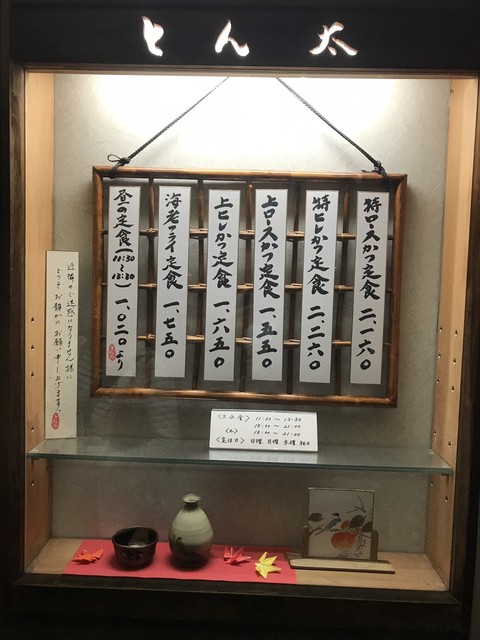 とん太
特ロースかつ定食 二、一六〇
特ヒレかつ定食 二、二六〇
上ロースかつ定食 一、五五〇
上ヒレかつ定食 一、六五〇
海老フライ定食 一、七五〇
昼の定食(11:30〜13:30) 一、〇二〇より
近隣の ご迷惑にならません様に
どうぞ お静かに お願い申し上げます。
〈火水金〉 11:30〜13:30
18:00〜21:00
〈土〉 18:00〜21:00
〈定休日〉 日曜 月曜 木曜 祝日